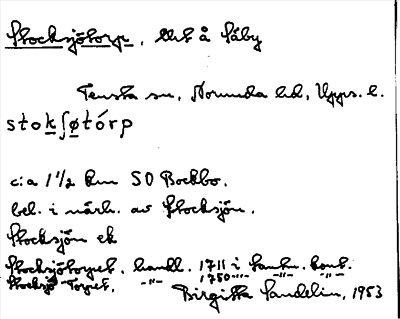 Stocksjötorp, utk å Säby
Tensta sn, Norunda hd, Upps. l.
stokʃøtórp
c:a 1 1/2 km SO Bockbo.
bel. i närh. av Stocksjön.
Stocksjön ek
Stocksjötorpet. handl. 1711 i Lantm. kont.
Stocksjö Torpet. -"- 1750 -"- -"- -"-
Birgitta Sandelin, 1953